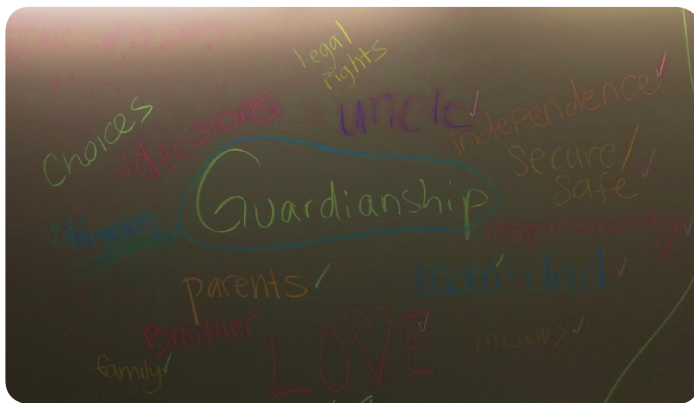 legal
rights
choices
decisions
uncle
independence
secure/
safe
Guardianship
responsibility
parents
mom + dad
Brother
LOVE
inlaws
family